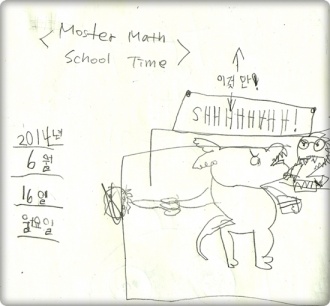 < Moster Math
School Time >
이것 만!
SHHHHAHH!
2014년
6 월
16 일
월요일